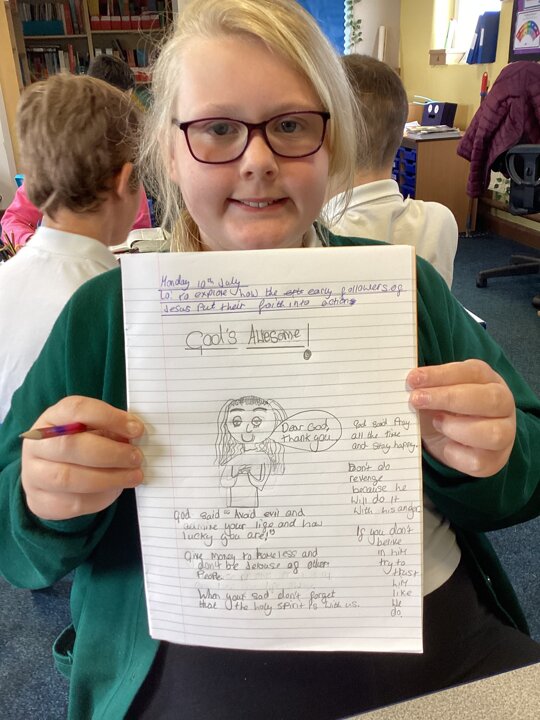 Monday 10th July
Lo. To explore how the early followers of
Jesus Put their faith into action
God's Awesome!
Dear God,
thank you
God said Pray
all the time
and stay happy.
Don't do
revenge
because he
will do it
with his anger
If you don't
belive
in him
try to
trust
him
like
we
do.
God said "Avoid evil and
admire your life and how
lucky you are!"
Give money to homeless and
don't be jelouse of other
People.
When your sad don't forget
that the holy spirit is with us.